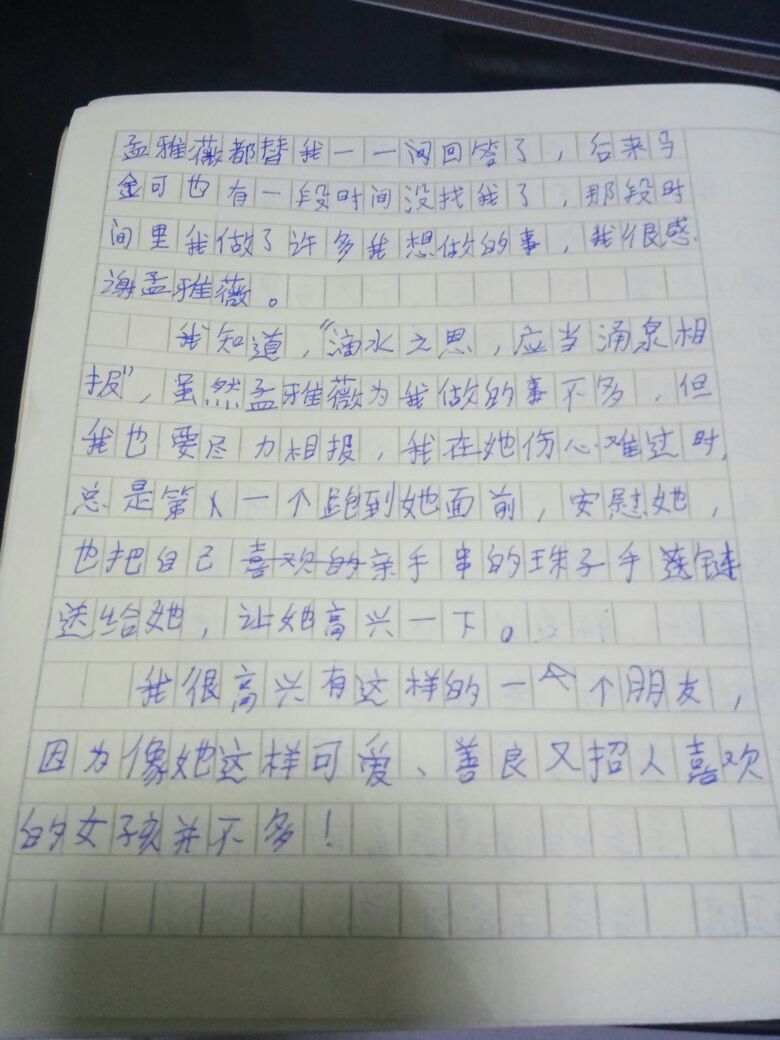 孟雅薇都替我一一问回答了，后来马
金可也有一段时间没找我了，那段时
间里我做了许多我想做的事，我很感
谢孟雅薇。
我知道，“滴水之恩，应当涌泉相
报”，虽然孟雅薇为我做的事不多，但
我也要尽力相报，我在她伤心难过时，
总是第一个跑到她面前，安慰她，
也把自己喜欢的亲手串的珠子手链
送给她，让她高兴一下。
我很高兴有这样的一个朋友，
因为像她这样可爱、善良又招人喜欢
的女孩并不多！